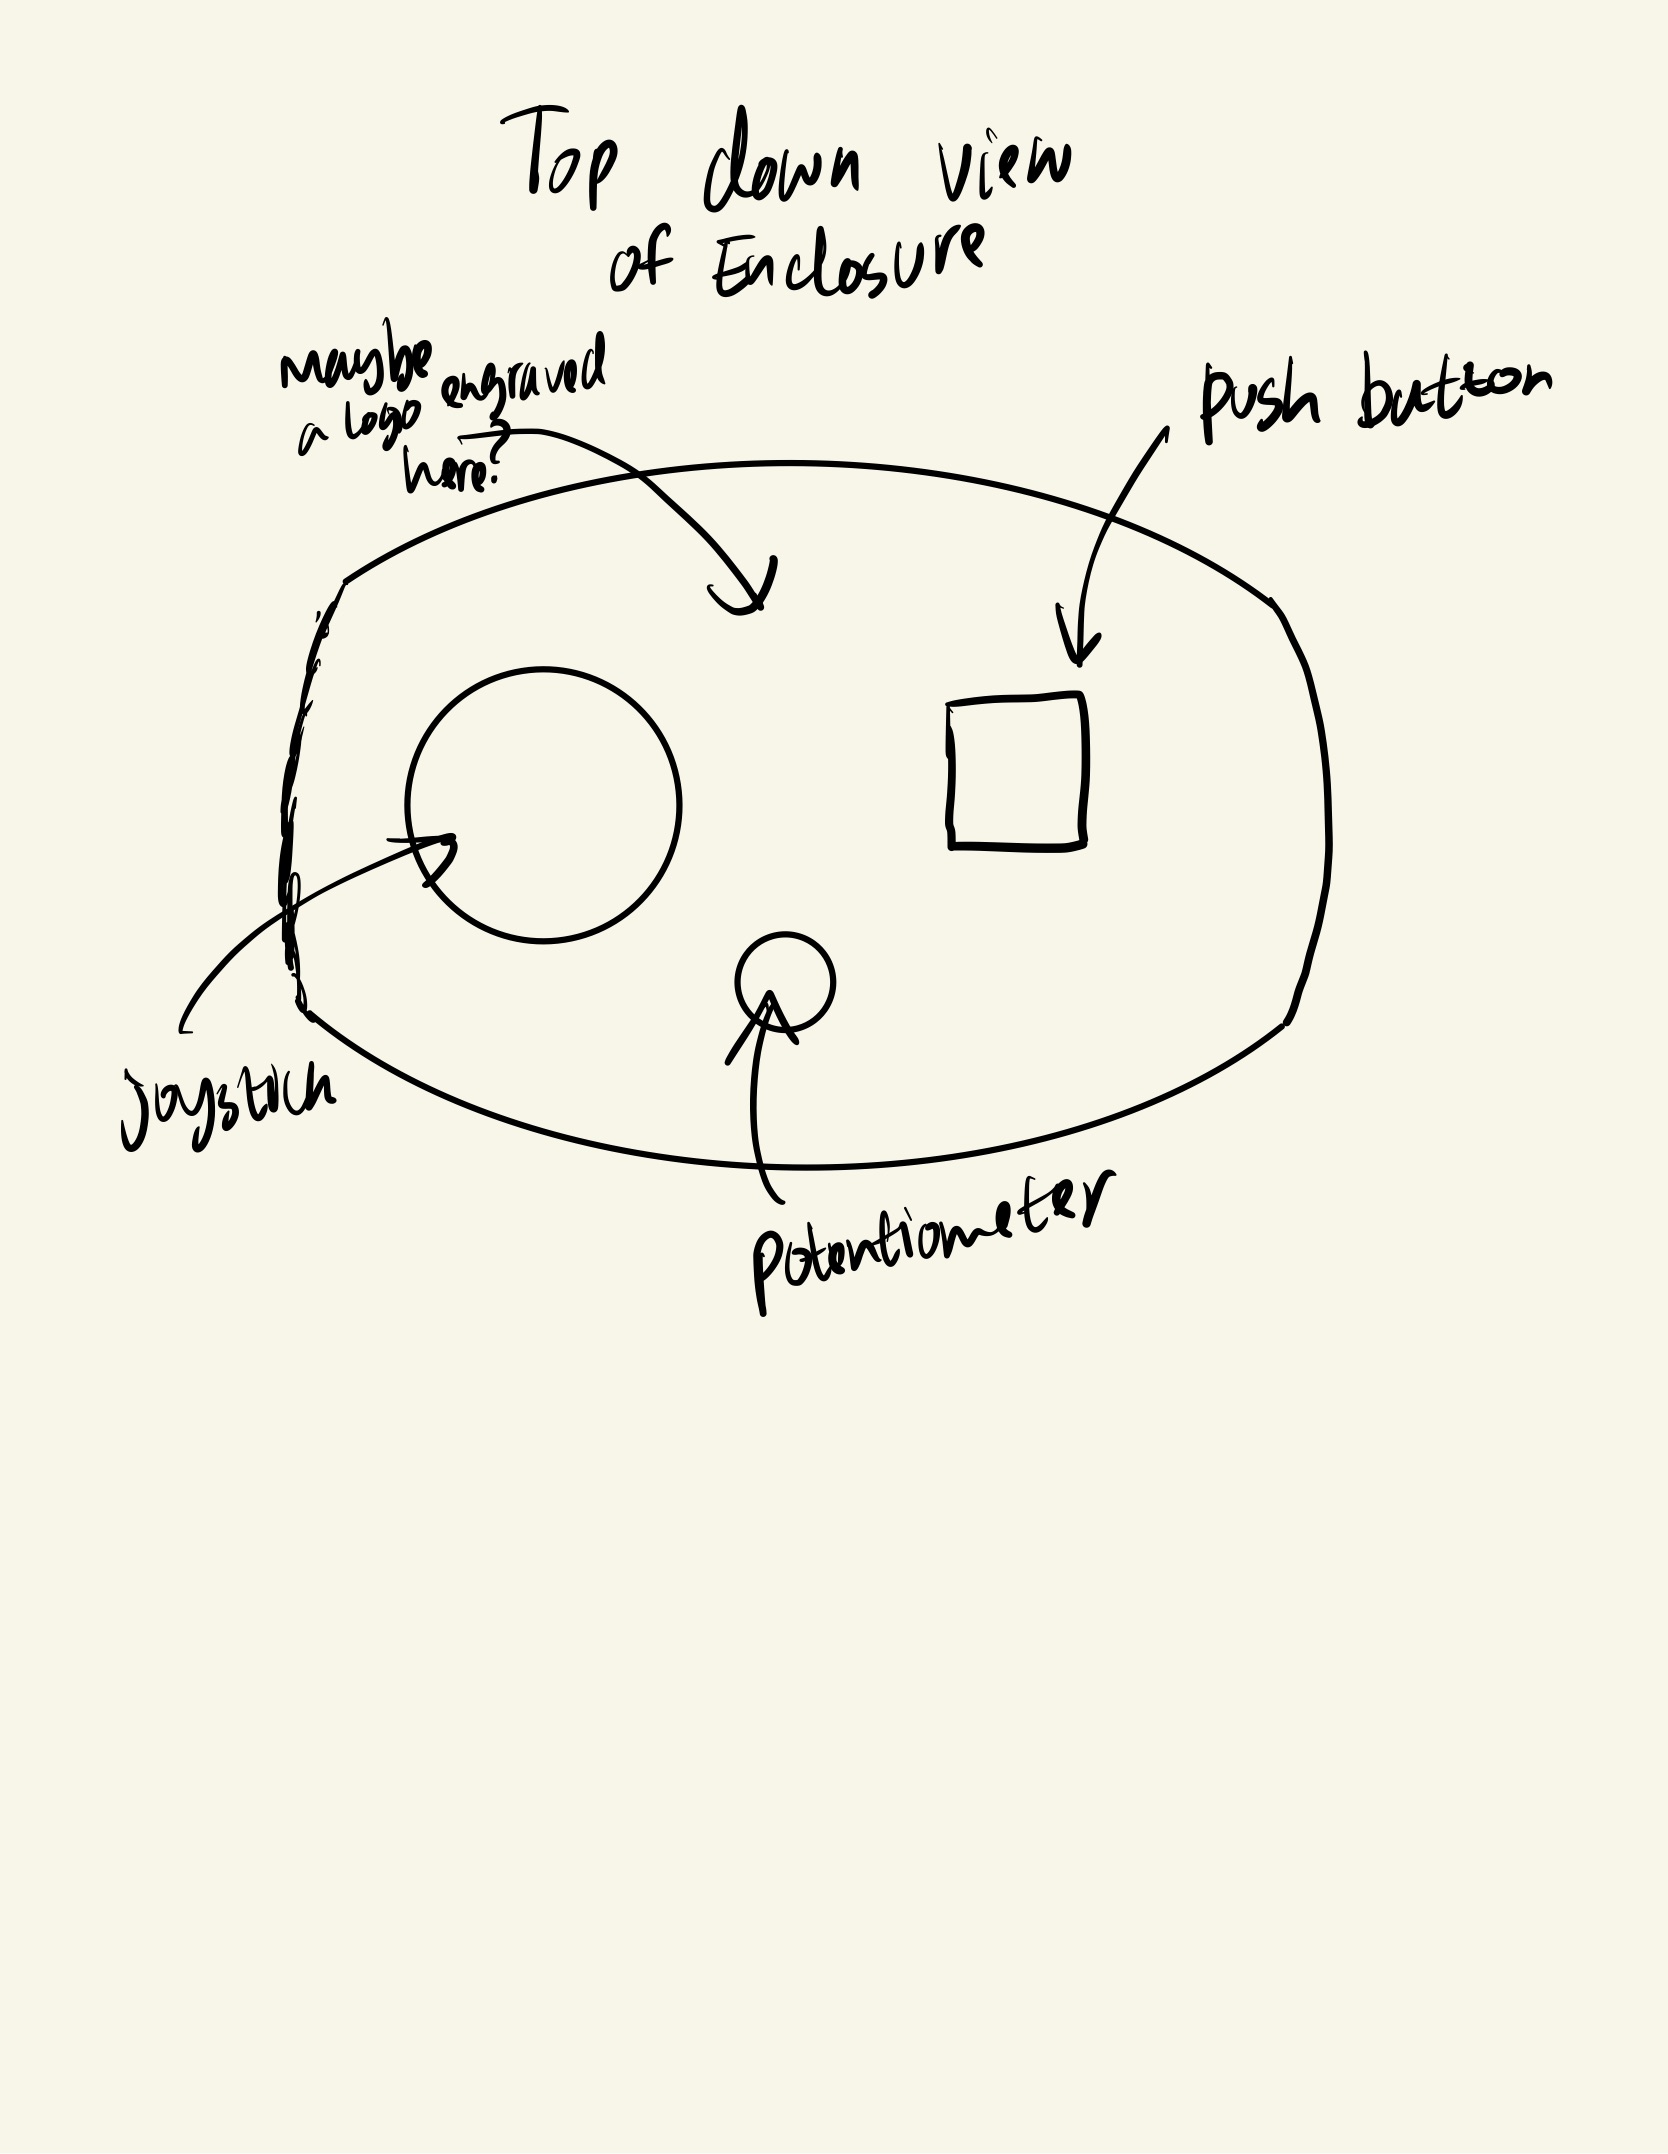 Top down view
of Enclosure
maybe engraved
a logo
here?
push button
joystick
potentiometer